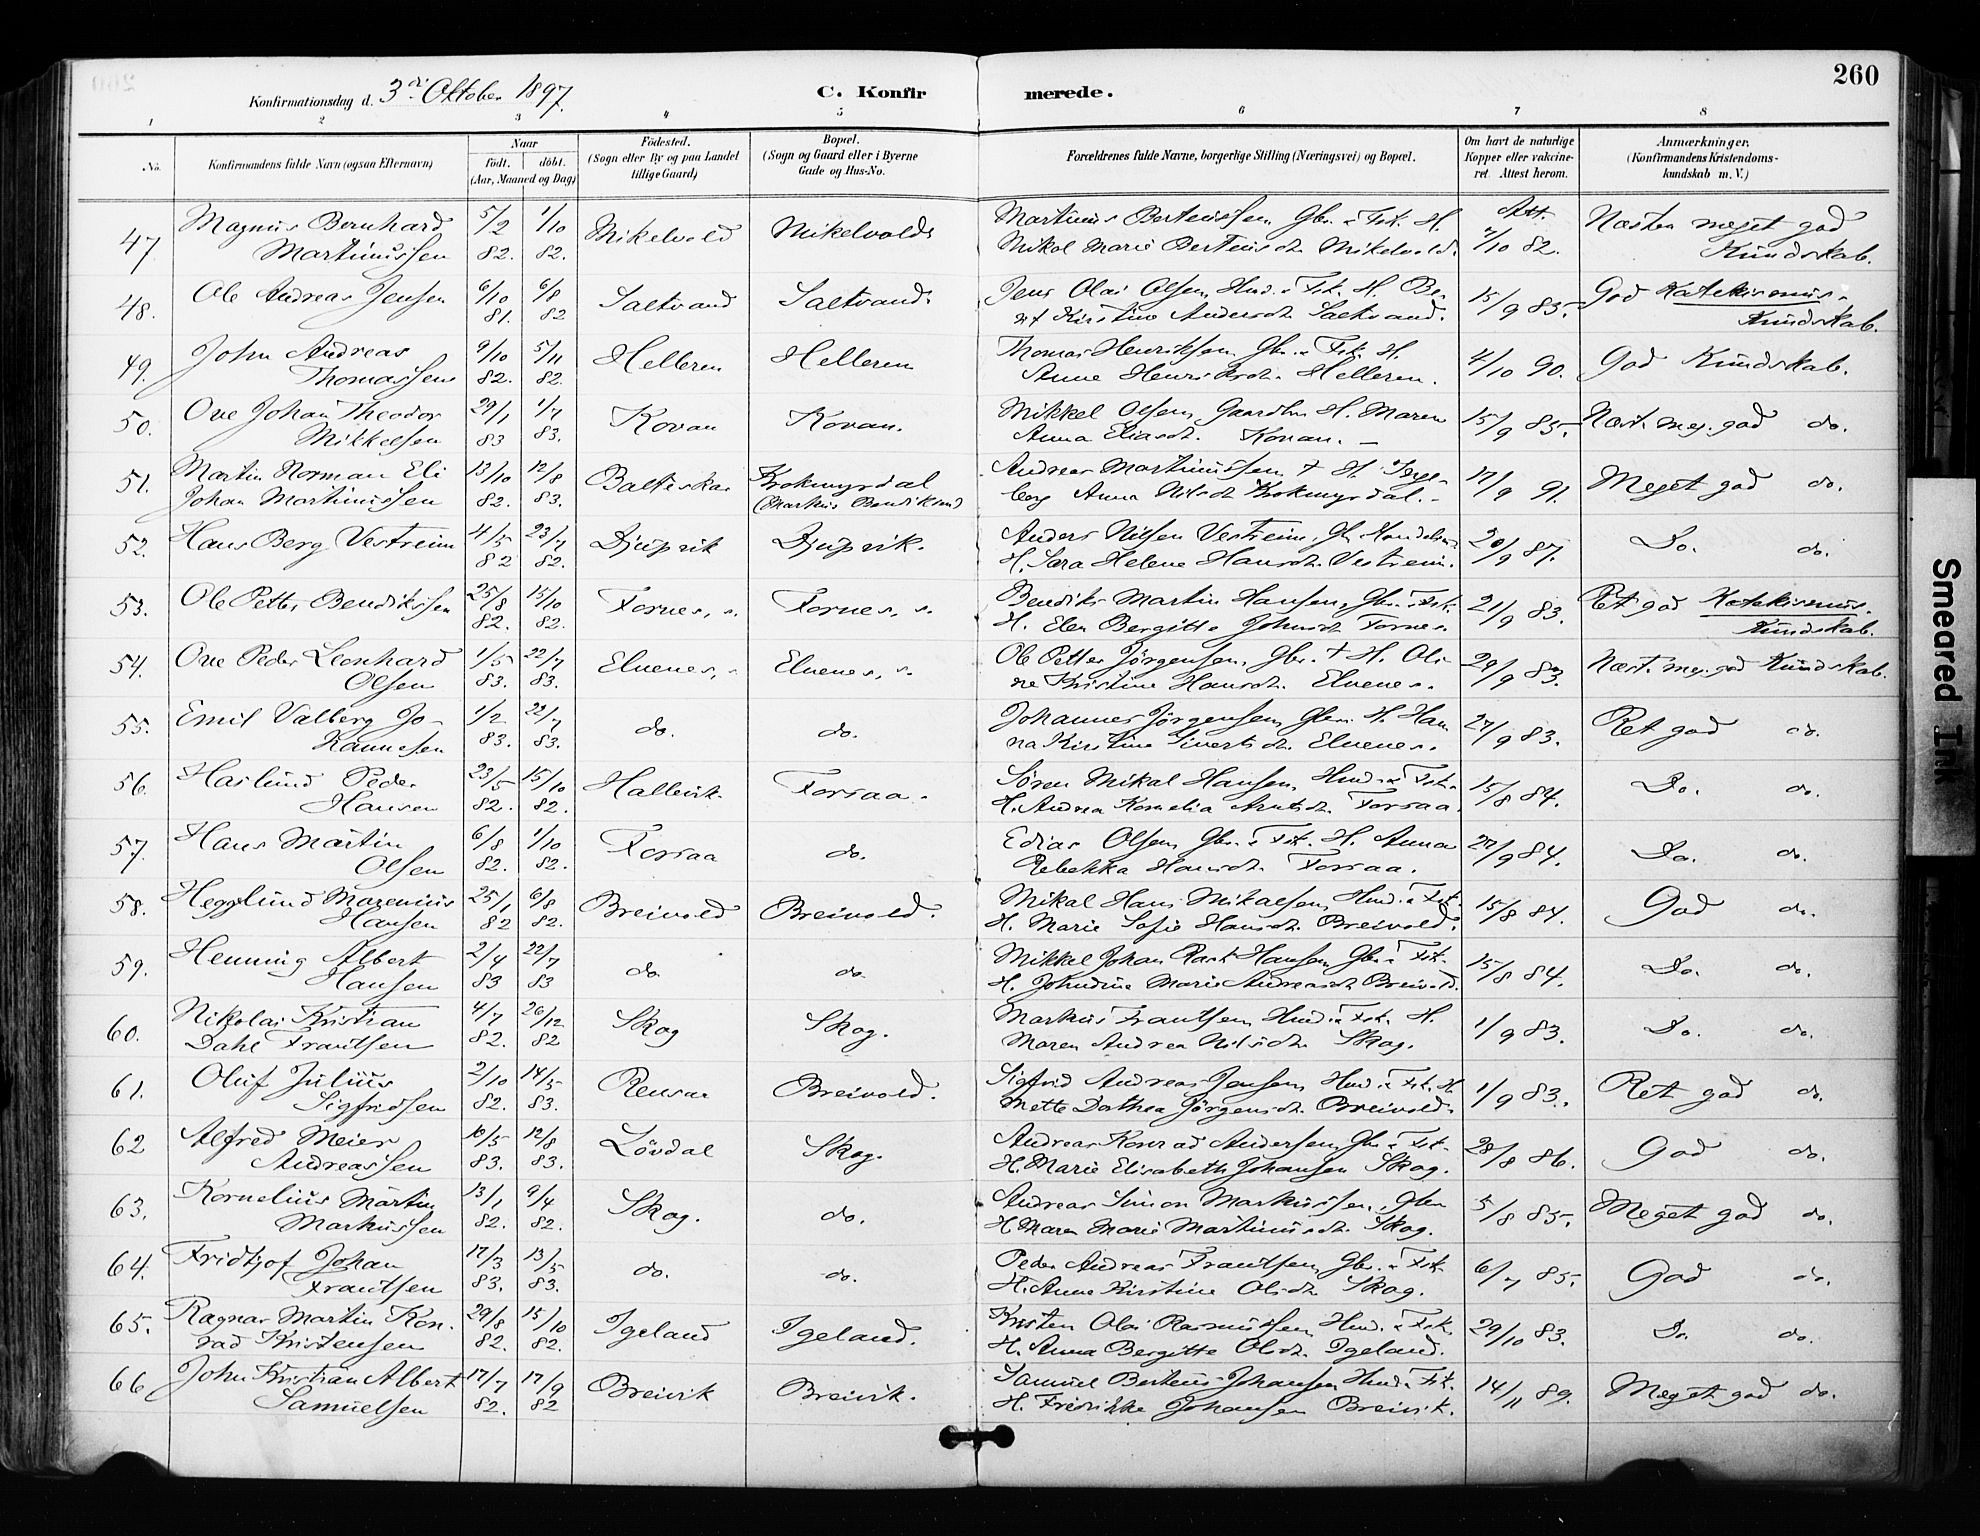 260
Konfirmationsdag d. 3die Oktober 1897.
C. Konfirmerede.
1 2 3 4 5 6 7 8
No. Konfirmandens fulde Navn (ogsaa Efternavn) Naar født. døbt. (Aar, Maaned og Dag) Fødested. (Sogn eller By og paa Landet tillige Gaard) Bopæl. (Sogn og Gaard eller i Byerne Gade og Hus-No. Forældrenes fulde Navne, borgerlige Stilling (Næringsvei) og Bopæl. Om havt de naturlige Kopper eller vakcineret. Attest herom. Anmærkninger. (Konfirmandens Kristendomskundskab m. V.)
47 Magnus Bernhard 5/2 1/10 Mikelvold Mikelvold Martinus Berteussen Gbr. & Fsk. H. Att. Næsten meget god
Martinussen 82. 82. Mikal Marie Berteusdt. Mikelvold. 7/10 82. Kundskab.
48. Ole Andreas Jensen 6/10 6/8 Saltvand Saltvand. Jens Olai Olsen, Hmd. & Fsk. H. Be- 15/9 83. God Katekismus-
81. 82 nt Kirstine Andersdt. Saltvand. Kundskab.
49. John Andreas 9/10 5/11 Helleren Helleren Thomas Henriksen Gbr. & Fsk. H. 4/10 90. God Kundskab.
Thomassen 82. 82. Anne Henriksdt. Helleren.
50. Ove Johan Theodor 29/1 1/7 Kovan Kovan. Mikkel Olsen, Gaardbr. H. Maren 15/9 85. Næst. meg. god do.
Mikkelsen 83 83. Anna Eliasdt. Kovan.
51. Martin Norman Eli 13/10 12/8 Balteskar Krokmyrdal Andreas Martinussen † H. Inge- 17/9 91. Meget god do.
Johan Martinussen 82. 83. (Markus Bendiksen) borg Anna Nilsdt. Krokmyrdal.
52. Hans Berg Vestreim 4/5 23/7 Djupvik Djupvik. Anders Nilsen Vestreim, Gb. Handelsm. 20/9 87. Do. do.
82 82. H. Sara Helene Hansdt. Vestreim.
53. Ole Petter Bendikssen 25/8 15/10 Fornes, s. Fornes, s. Bendiks Martin Hansen, Gbr. & Fsk. 21/9 83. Ret god Katekismus-
82. 82. H. Elen Bergitte Johnsdt. Fornes. Kundskab.
54. Ove Peder Leonhard 1/5 22/7 Elvenes, s. Elvenes, s. Ole Petter Jörgensen, Gbr. † H. Oli- 29/9 83. Næst. meg. god Kundskab.
Olsen 83. 83. ne Kristine Hansdt. Elvenes.
55. Emil Valberg Jo- 1/2 22/7 do. do. Johannes Jörgensen, Gbr. H. Han- 27/9 83. Ret god do.
hannesen 83. 83. na Kirstine Sivertsdt. Elvenes.
56. Haslund Peder 23/5 15/10 Hallevik Forsaa. Sören Mikal Hansen, Hmd. & Fsk. 15/8 84. Do. do.
Hansen 82. 82. H. Andrea Kornelia Arntsdt. Forsaa.
57. Hans Martin 6/8 1/10 Forsaa do. Edias Olsen, Gbr. & Fsk. H. Anna 27/9 84. Do. do.
Olsen 82. 82. Rebekka Hansdt. Forsaa.
58. Hegglund Marenius 25/1 6/8 Breivold Breivold. Mikal Hans Mikalsen, Hmd. & Fsk. 15/8 84. God do.
Hansen 82 82. H. Marie Sofie Hansdt. Breivold.
59. Henning Albert 2/4 22/7 do. do. Mikkel Johan Rast Hansen, Gbr. & Fsk. 15/8 84. Do. do.
Hansen 83 83 H. Johndine Marie Andreasdt. Breivold.
60. Nikolai Kristian 4/7 26/12 Skog Skog. Markus Frantsen, Hmd. & Fsk. H. 1/9 83. Do. do.
Dahl Frantsen 82. 82 Maren Andrea Nilsdt. Skog.
61. Oluf Julius 2/10 14/5 Rensaa Breivold. Sigfrid Andreas Jensen, Hmd. & Fsk. H. 1/9 83. Ret god do.
Sigfridsen 82. 83. Mette Dorthea Jörgensdt. Breivold.
62 Alfred Meier 10/5 12/8 Lövdal Skog. Andreas Konrad Andersen, Gbr. & Fsk. 28/8 86. God do.
Andreassen 83. 83. H. Marie Elisabeth Johansen Skog.
63. Kornelius Martin 13/1 9/4 Skog. do. Andreas Simon Markussen, Gbr. 5/8 85. Meget god do.
Markussen 82. 82. H. Maren Marie Martinusdt. Skog.
64. Fridtjof Johan 17/3 13/5 do. do. Peder Andreas Frantsen, Gbr. & Fsk. 6/7 85. God do.
Frantsen 83. 83. H. Anne Kirstine Olsdt. Skog.
65. Ragnar Martin Kon- 29/8 15/10 Igeland Igeland. Kristen Olai Rasmussen, Hmd. & Fsk. 29/10 83. Do. do.
rad Kristensen 82. 82. H. Anna Bergitte Olsdt. Igeland.
66 John Kristian Albert 17/7 17/9 Breivik Breivik. Samuel Berteus Johansen, Hmd. & Fsk. 14/11 89. Meget god do.
Samuelsen 82. 82 H. Fredrikke Johansen Breivik.
Smeared Ink